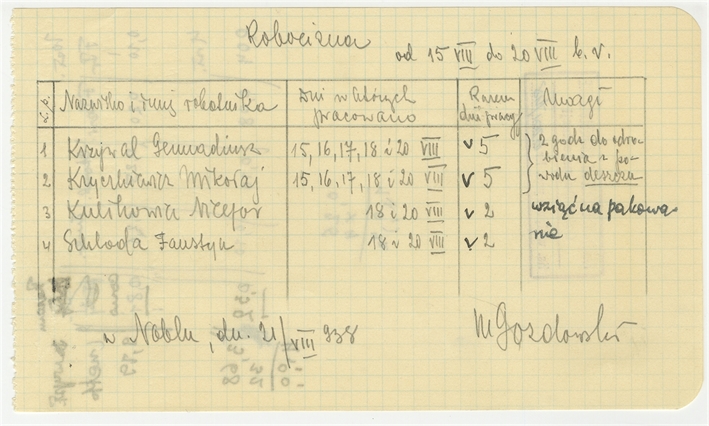 Robocizna
od 15 VIII do 20 VIII b. r.
L.p. Nazwisko i imię robotnika Dni w których pracowano Razem dni pracy Uwagi
1 Krzywal Gennadiusz 15, 16, 17, 18 i 20 VIII v 5 2 godz. do odro-
bienia z po-
wodu deszczu
2 Mikołaj 15, 16, 17, 18 i 20 VIII v 5
3 Nicefor 18 i 20 VIII v 2 wziąć na pakowa-
nie
4 Szkłoda Faustyn 18 i 20 VIII v 2
w Noblu, dn. 21/VIII 938
M Gozdowski